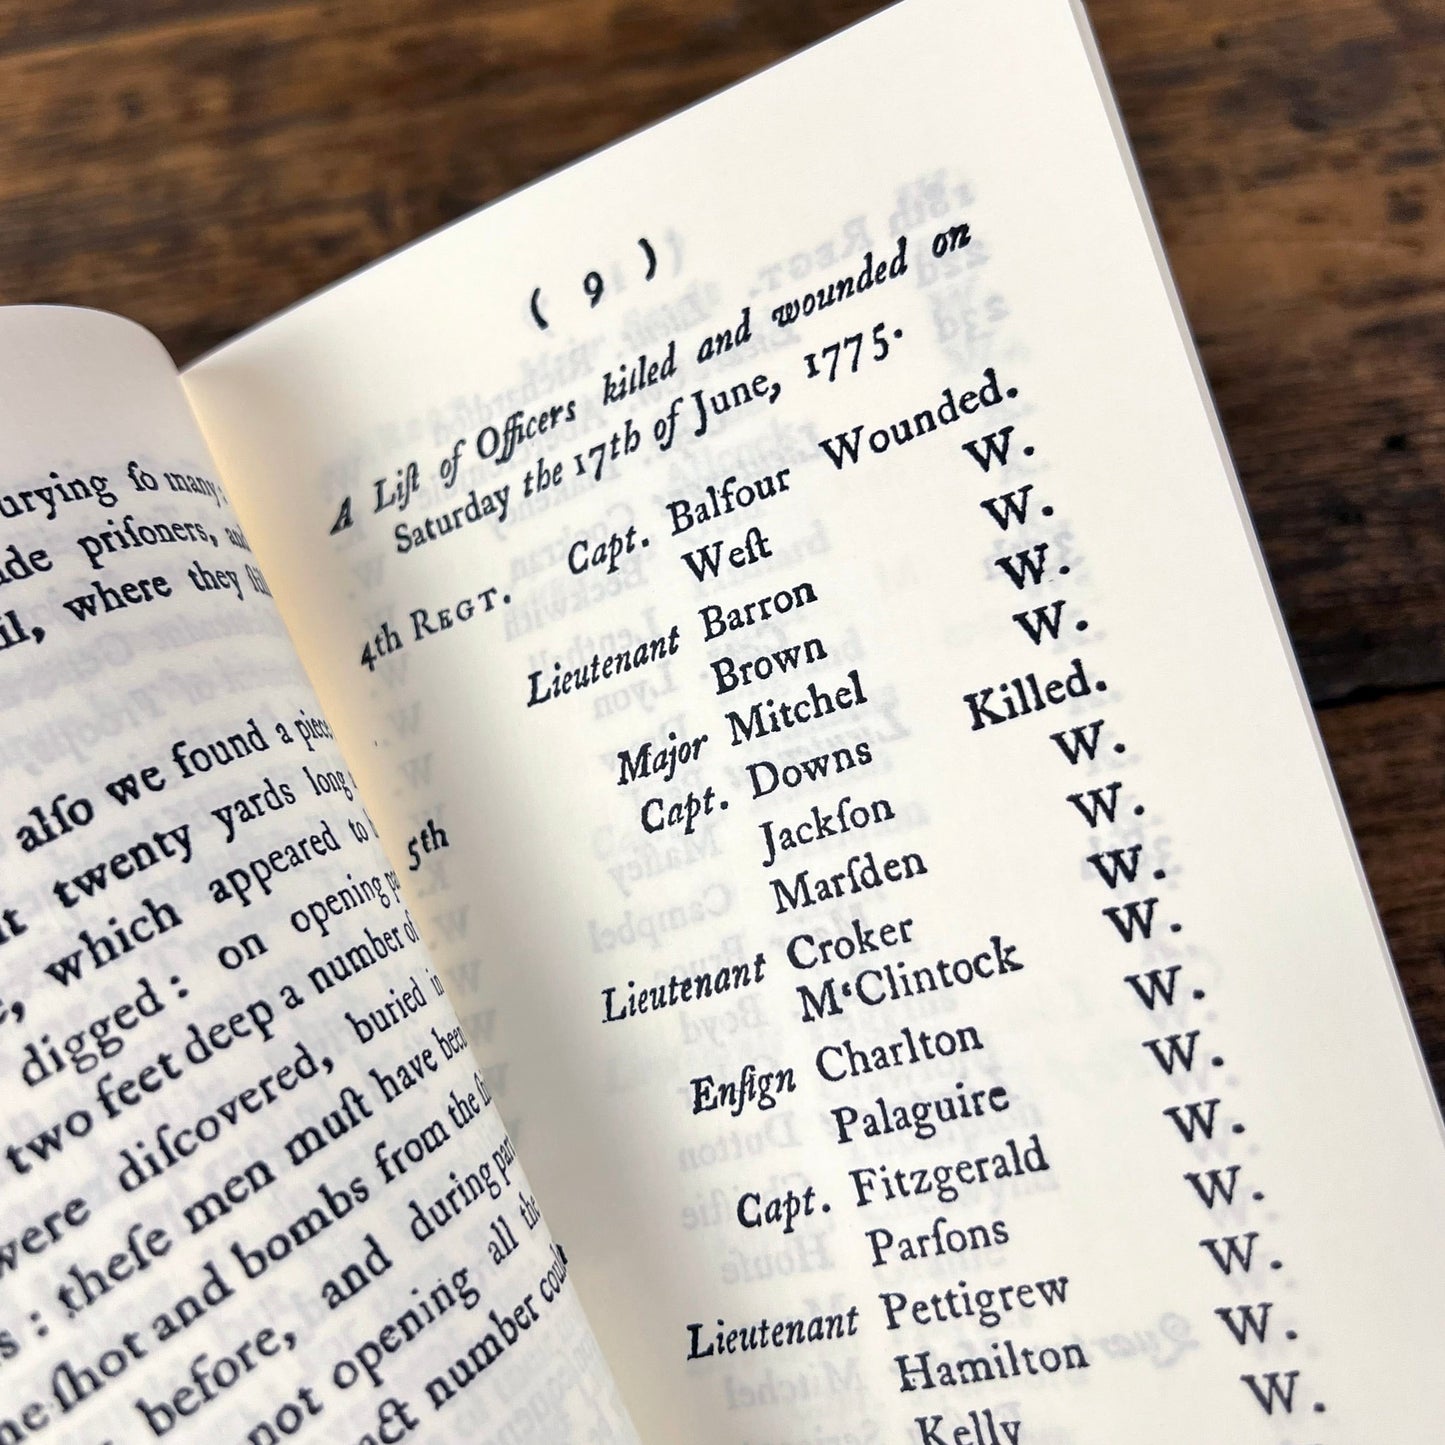 urying ſo many:
ade priſoners, and
il, where they ſtil
alſo we found a piece
t twenty yards long
, which appeared to
digged: on opening
two feet deep a number of
were diſcovered, buried in
s: theſe men muſt have been
he ſhot and bombs from the
before, and during part
not opening all the
act number could
( 9 )
A Liſt of Officers killed and wounded on
Saturday the 17th of June, 1775.
4th REGT. Capt. Balfour Wounded.
Weſt W.
Lieutenant Barron W.
Brown W.
5th Major Mitchel W.
Capt. Downs Killed.
Jackſon W.
Marſden W.
Lieutenant Croker W.
M‘Clintock W.
Enſign Charlton W.
Palaguire W.
Capt. Fitzgerald W.
Parſons W.
Lieutenant Pettigrew W.
Hamilton W.
Kelly W.